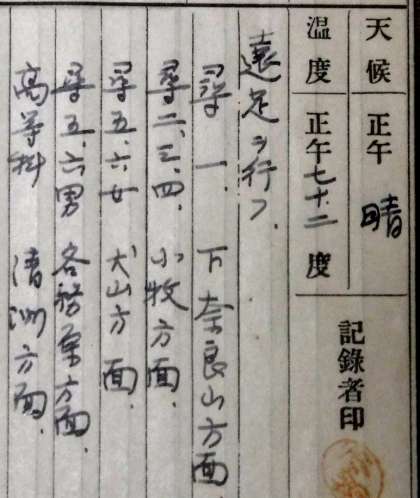 天候 正午 晴
温度 正午七十二度
記録者印
遠足ヲ行フ
尋一、下奈良山方面
尋二、三、四、小牧方面、
尋五、六女 犬山方面、
尋五、六男 各務原方面、
高等科 清洲方面、